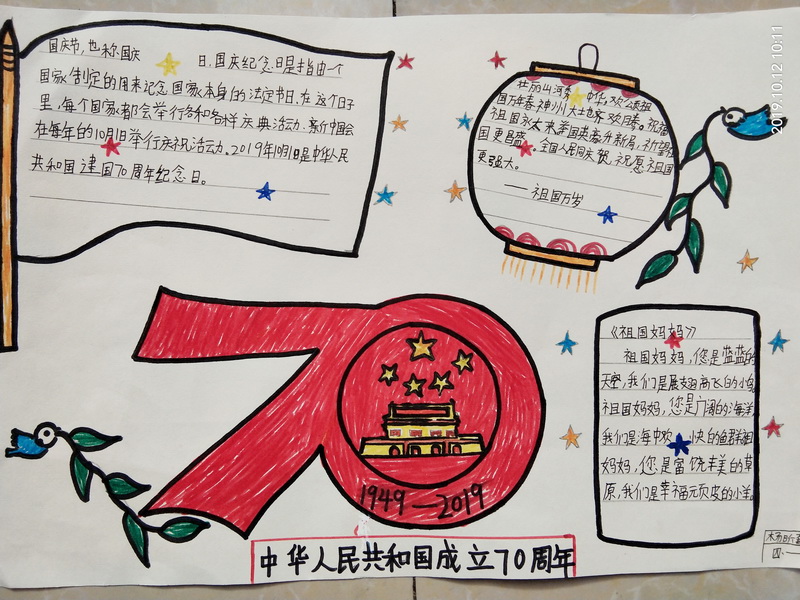 国庆节,也称国庆日,国庆纪念日是指由一个
国家制定的用来纪念国家本身的法定节日.在这个日子
里,每个国家都会举行各和各样庆典活动.新中国会
在每年的10月1日举行庆祝活动.2019年10月1日是中华人民
共和国建国70周年纪念日。
壮丽山河 中华,欢颂祖
国万年春.神州大土也齐欢腾。祝福
更强大。
——祖国万岁
《祖国妈妈》
祖国妈妈,您是蓝蓝的
天空,我们是展翅高飞的小鸟
祖国妈妈,您是广阔的海洋
我们是海中欢快的鱼群祖
妈妈,您是富饶丰美的草
原,我们是幸福顽皮的小羊。
1949—2019
中华人民共和国成立70周年
2019.10.12 10:11